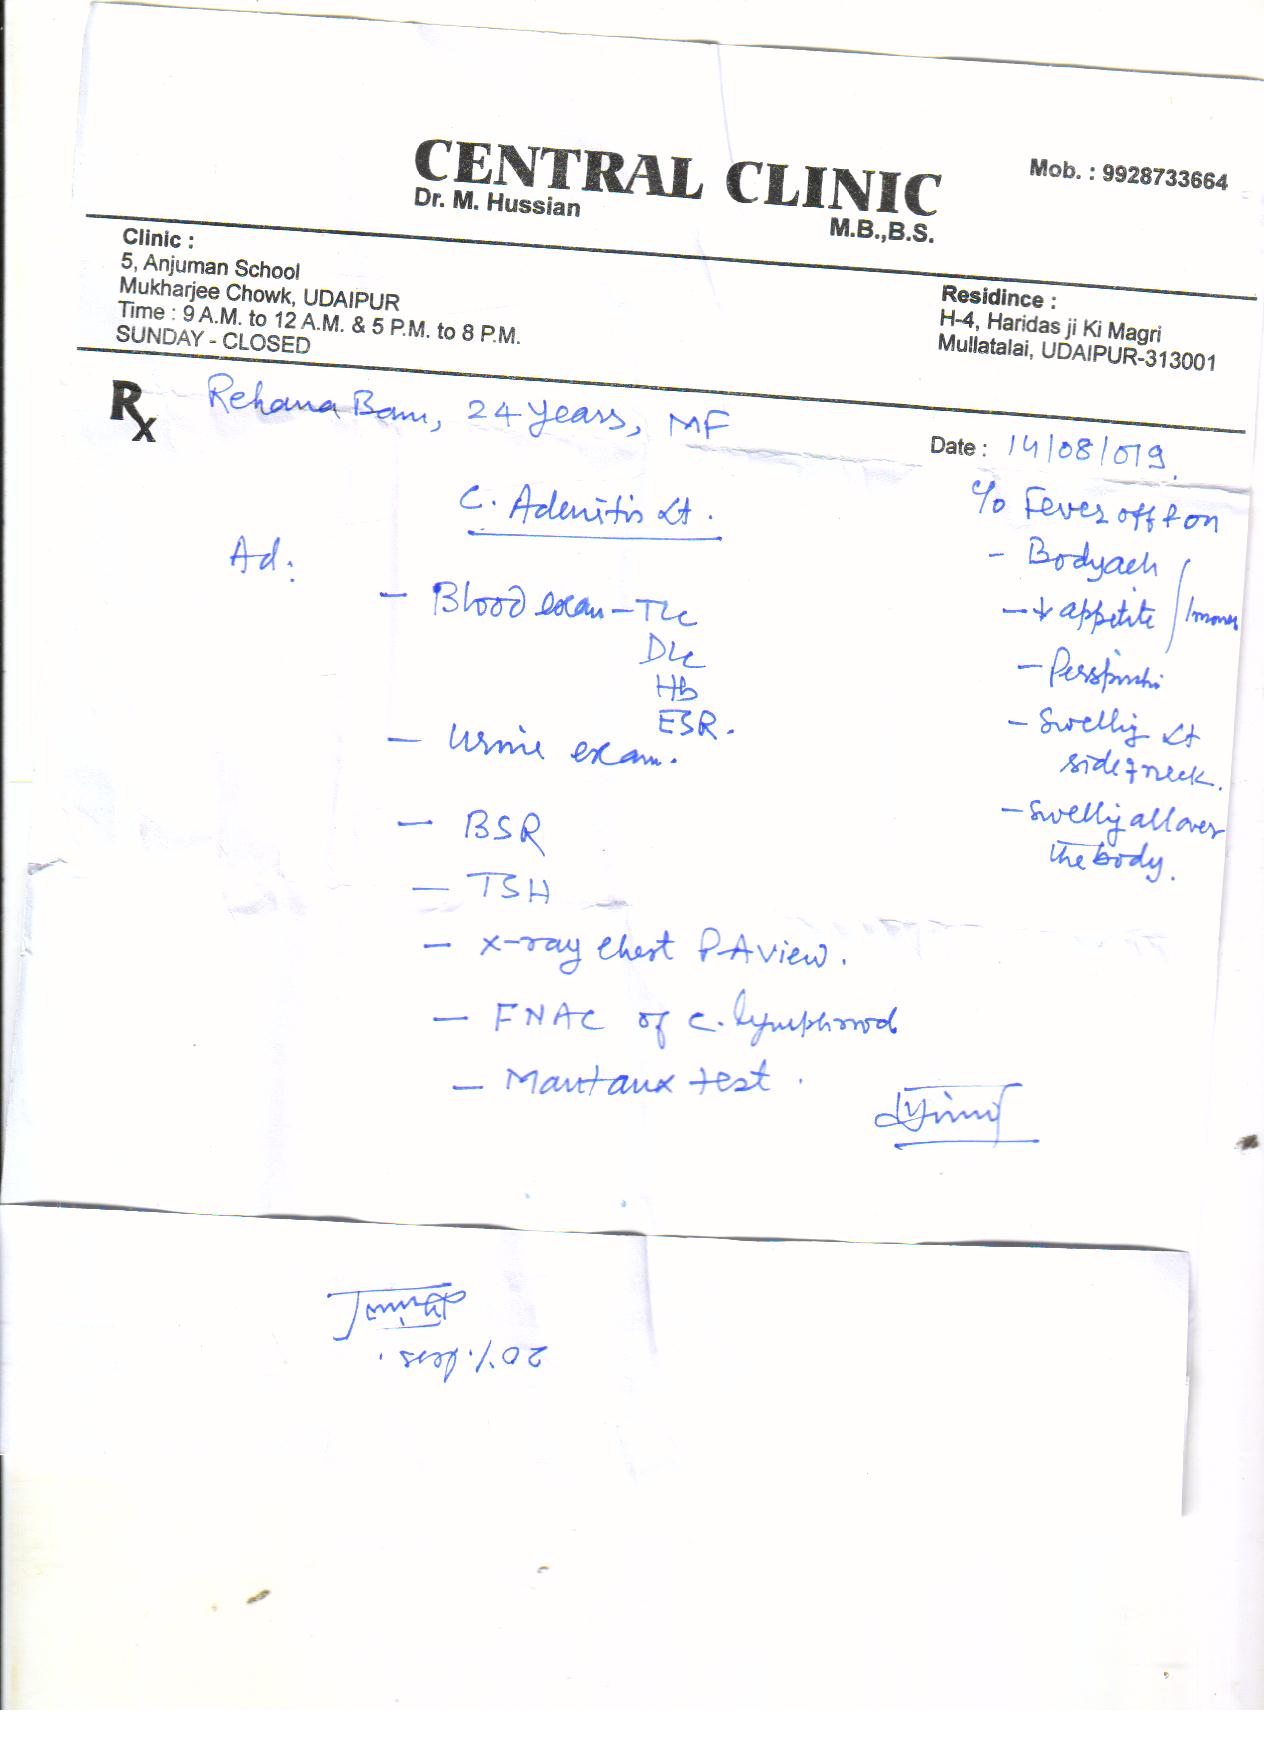 CENTRAL CLINIC
Mob. : 9928733664
Dr. M. Hussian
M.B.,B.S.
Clinic :
5, Anjuman School
Mukharjee Chowk, UDAIPUR
Time : 9 A.M. to 12 A.M. & 5 P.M. to 8 P.M.
SUNDAY - CLOSED
Residince :
H-4, Haridas ji Ki Magri
Mullatalai, UDAIPUR-313001
Rx Rehana Banu, 24 years, MF
Date : 14/08/019.
C. Adenitis Lt.
Ad:
- Blood exam - TLC
DLC
Hb
ESR.
- Urine exam.
- BSR
- TSH
- X-ray Chest P-A view.
- FNAC of C. lymphnod
- Mantaux test.
c/o Fever off & on
- Bodyach
- ↓ appetite
- Swellig Lt
side of neck.
- Swellig all over
the body.
20%. less.